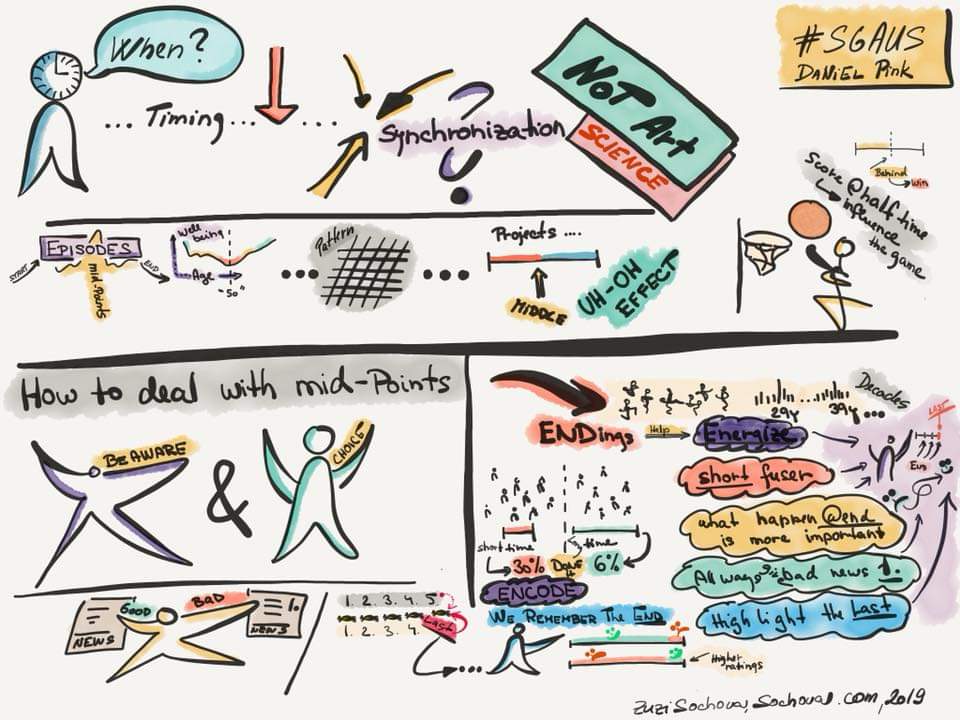 When?
#SGAUS
DANIEL Pink
... Timing... ...
Synchronization
?
NOT Art
SCIENCE
Behind
win
Score @half-time
influence
the game
START
EPISODES
END
mid-Points
Well
being
Age
~50~
Pattern
Projects ....
MIDDLE
UH-OH
EFFECT
How to deal with mid-Points
BE AWARE
&
CHOICE
GOOD
BAD
NEWS
NEWS
1. 2. 3. 4. 5.
1. 2. 3. 4.
Last
ENDings
Help
29y ... 39y ...
Decades
Energize
short fuser
what happen @end
is more important
All ways bad news 1.
High light the Last
LAST
short time
time
30%
DONE
6%
ENCODE
WE REMEMBER THE END
Higher
ratings
Zuzi Sochova, Sochova.com, 2019